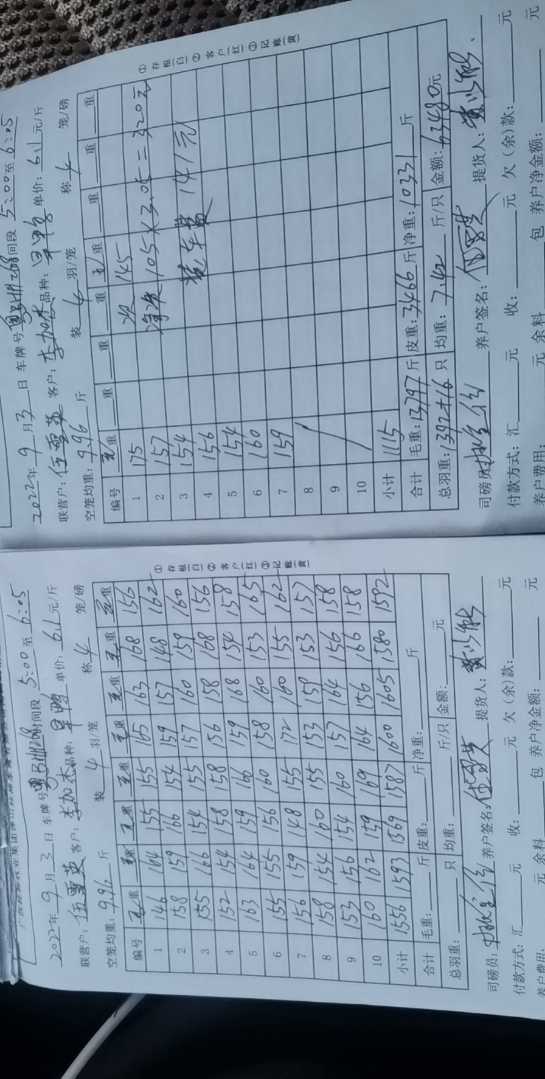 2022年9月3日 车牌号 时间段 5:00至6:05
联营户: 伍雪英 客户: 李加杰 品种: 单价: 6.1元/斤
空笼均重: 9.96斤 装4羽/笼 称4笼/磅
编号 毛重 毛重 毛重 毛重 毛重 毛重 毛重 毛重
1 146 164 155 155 165 163 168 156
2 158 159 166 154 159 157 148 162
3 155 166 154 155 157 160 159 160
4 152 154 158 158 156 158 168 156
5 163 164 159 160 159 168 154 158
6 155 155 156 160 158 160 153 165
7 156 159 148 155 172 160 155 162
8 158 154 160 155 153 159 153 157
9 153 156 154 160 157 164 156 158
10 160 162 159 169 164 156 166 158
小计 1556 1593 1569 1587 1600 1605 1580 1592
合计 毛重: 斤 皮重: 斤 净重: 斤
总羽重: 只 均重: 斤/只 金额: 元
司磅员: 养户签名: 伍雪英 提货人:
付款方式: 汇 元 收: 元 欠(余)款: 元
养户费用: 元 余料 包 养户净金额: 元
①存根(白)②客户(红)③记账(黄)
2022年9月3日 车牌号 时间段 5:00至6:05
联营户: 伍雪英 客户: 李加杰 品种: 单价: 6.1元/斤
空笼均重: 9.96斤 装4羽/笼 称4笼/磅
编号 毛重 重 重 重 毛重 重 重 重
1 175 次 145
2 157 净重 105×3.05=320元
3 154
4 156 141元
5 154
6 160
7 159
8
9
10
小计 1115
合计 毛重: 13797斤 皮重: 3466斤 净重: 10331斤
总羽重: 1392+16只 均重: 7.42斤/只 金额: 63480元
司磅员: 养户签名: 伍雪英 提货人:
付款方式: 汇 元 收: 元 欠(余)款: 元
养户费用: 元 余料 包 养户净金额: 元
①存根(白)②客户(红)③记账(黄)